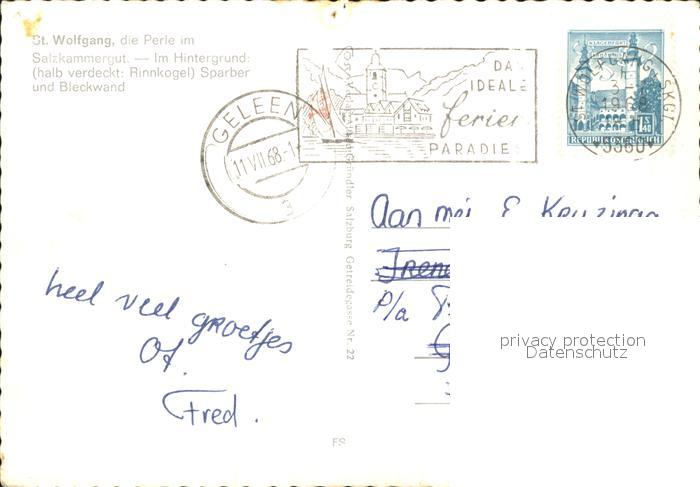 St. Wolfgang, die Perle im
Salzkammergut. — Im Hintergrund:
(halb verdeckt: Rinnkogel) Sparber
und Bleckwand
DAS
IDEALE
ferien
PARADIES
KLAGENFURT
S 1.40
REPUBLIK ÖSTERREICH
ST. WOLFGANG SKGT
5360
GELEEN
11 VII 68-1
3
Gründler Salzburg Getreidegasse Nr. 22
Aan mej E
P/a
heel veel groetjes
Of.
Fred.
ES
privacy protection
Datenschutz